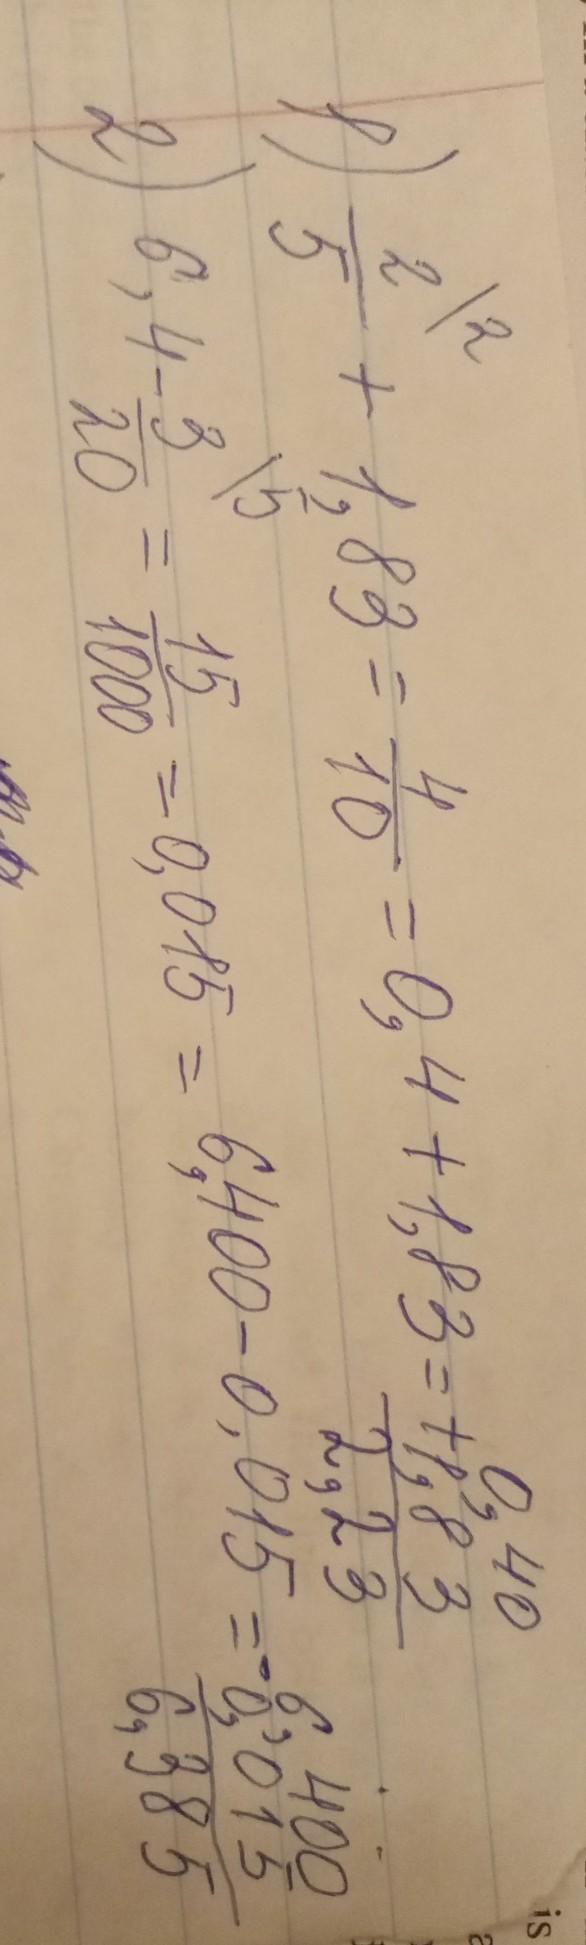 1) 2\2/5 + 1,83 = 4/10 = 0,4 + 1,83 = + 0,40
1,83
2,23
2) 6,4 - 3\5/20 = 15/1000 = 0,015 = 6,400 - 0,015 = - 6,400
0,015
6,385
is